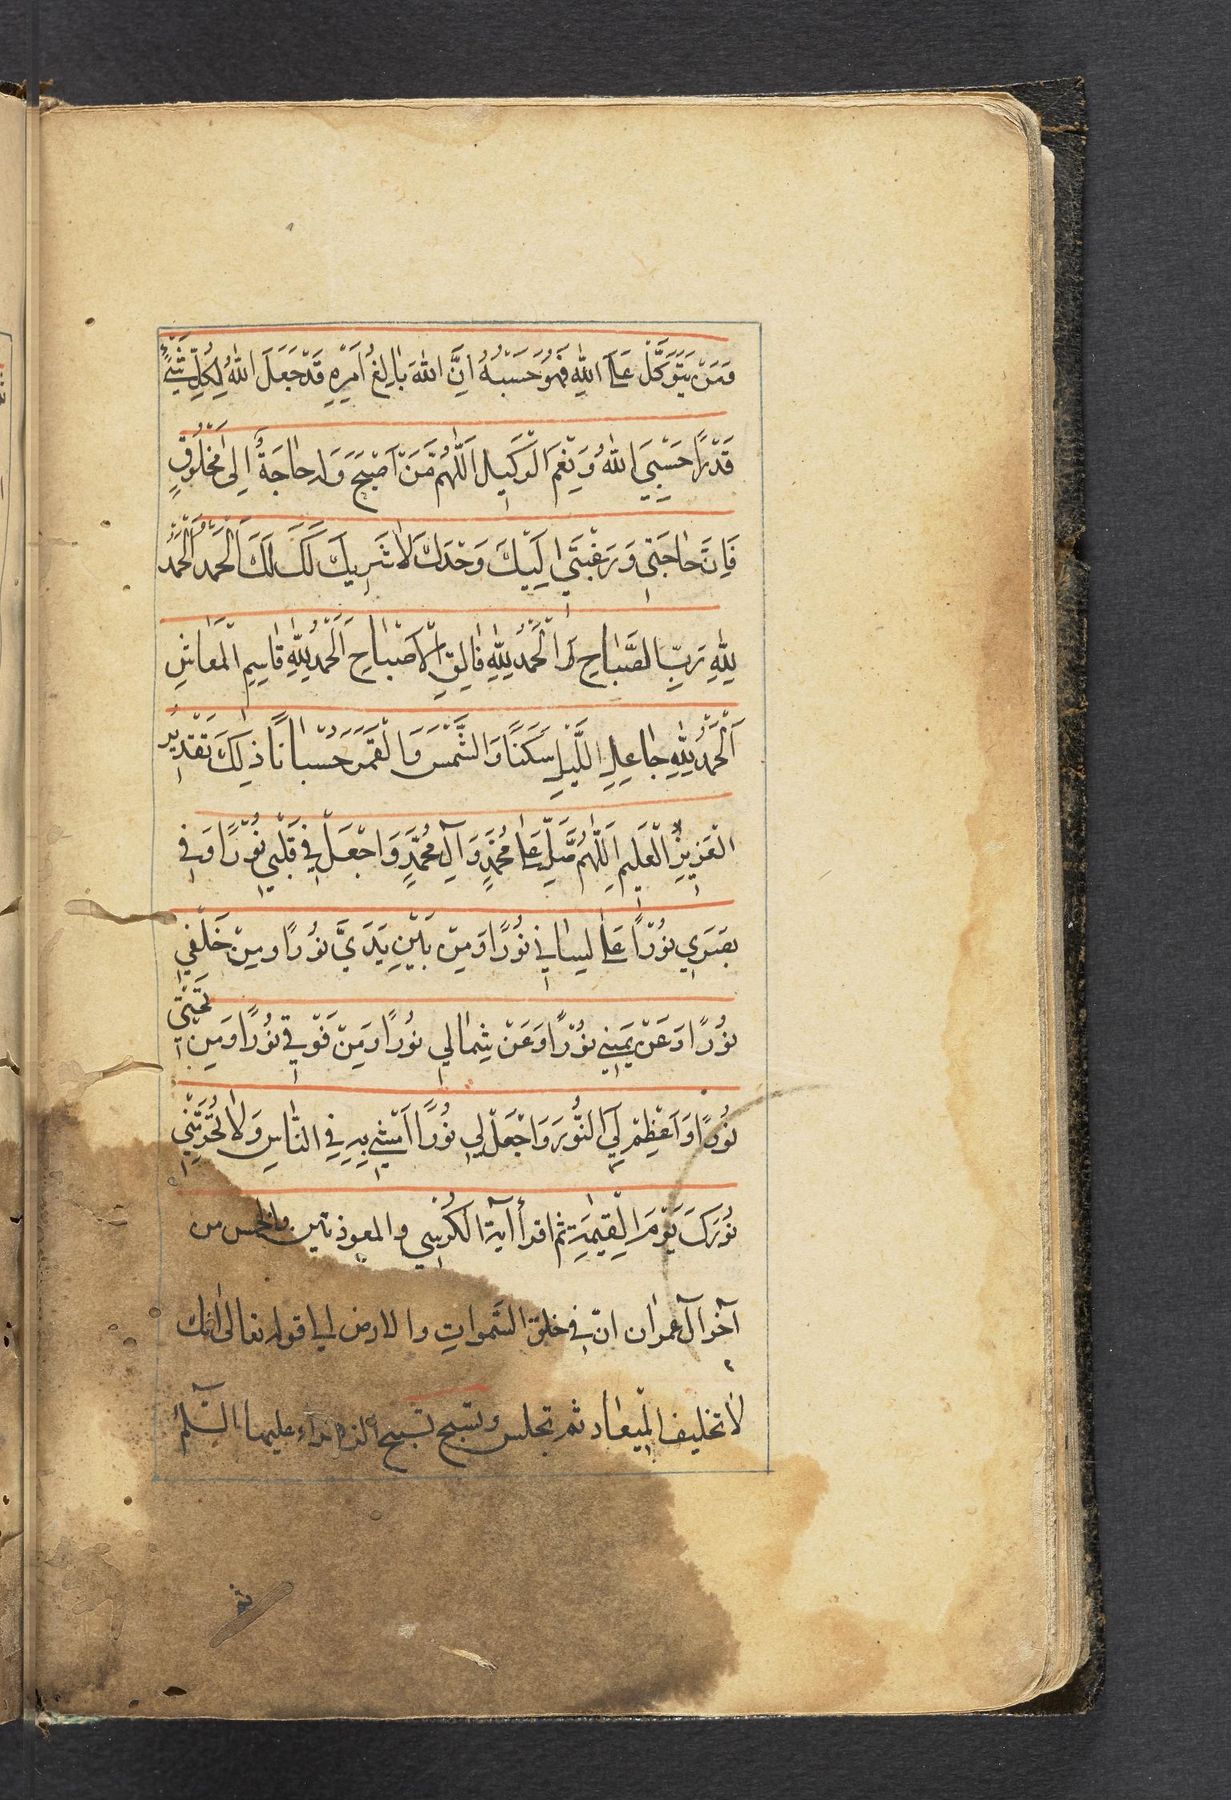 وَمَنْ يَتَوَكَّلْ عَلَى اللّٰهِ فَهُوَ حَسْبُهُ اِنَّ اللّٰهَ بَالِغُ اَمْرِهِ قَدْ جَعَلَ اللّٰهُ لِكُلِّ شَيْءٍ
قَدْرًا حَسْبِيَ اللّٰهُ وَ نِعْمَ الْوَكِيل اَللّٰهُمَّ مَنْ اَصْبَحَ وَلَهُ حَاجَةٌ اِلىٰ مَخْلُوقٍ
فَاِنَّ حَاجَتِي وَ رَغْبَتِي اِلَيْكَ وَحْدَكَ لَا شَرِيكَ لَكَ لَكَ الْحَمْدُ اَلْحَمْدُ
لِلّٰهِ رَبِّ الصَّبَاحِ اَلْحَمْدُ لِلّٰهِ فَالِقِ الْاَصْبَاحِ اَلْحَمْدُ لِلّٰهِ قَاسِمِ الْمَعَاشِ
اَلْحَمْدُ لِلّٰهِ جَاعِلِ اللَّيْلِ سَكَنًا وَالشَّمْسَ وَالْقَمَرَ حُسْبَانًا ذٰلِكَ تَقْدِيرُ
الْعَزِيزِ الْعَلِيمِ اَللّٰهُمَّ صَلِّ عَلٰى مُحَمَّدٍ وَ آلِ مُحَمَّدٍ وَاجْعَلْ فِي قَلْبِي نُورًا وَ فِي
بَصَرِي نُورًا عَلٰى لِسَانِي نُورًا وَمِنْ بَيْنِ يَدَيَّ نُورًا وَمِنْ خَلْفِي
نُورًا وَعَنْ يَمِينِي نُورًا وَعَنْ شِمَالِي نُورًا وَمِنْ فَوْقِي نُورًا وَمِن تَحْتِي
نُورًا وَاَعْظِمْ لِيَ النُّورَ وَاجْعَلْ لِي نُورًا اَمْشِي بِهِ فِي النَّاسِ وَلَا تَحْرِمْنِي
نُورَكَ يَوْمَ الْقِيٰمَةِ ثم اقرأ آية الكُرْسِي والمعوذتين والخمس من
آخر آل عمران ان في خلق السَّمواتِ والارض الى قوله تعالى انك
لا تخلف الميعاد ثم تجلس وتسبح تسبيح الزهراء عليها السَّلم
ثم